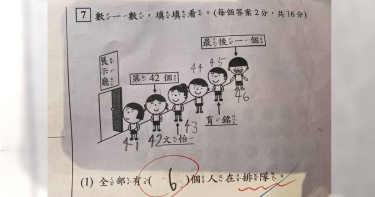 7 數一數，填填看。(每個答案2分，共16分)
最後一個
展示廳
第42個
44 45
46
41 42 43
文怡
育銘
(1) 全部有( 6 )個人在排隊。